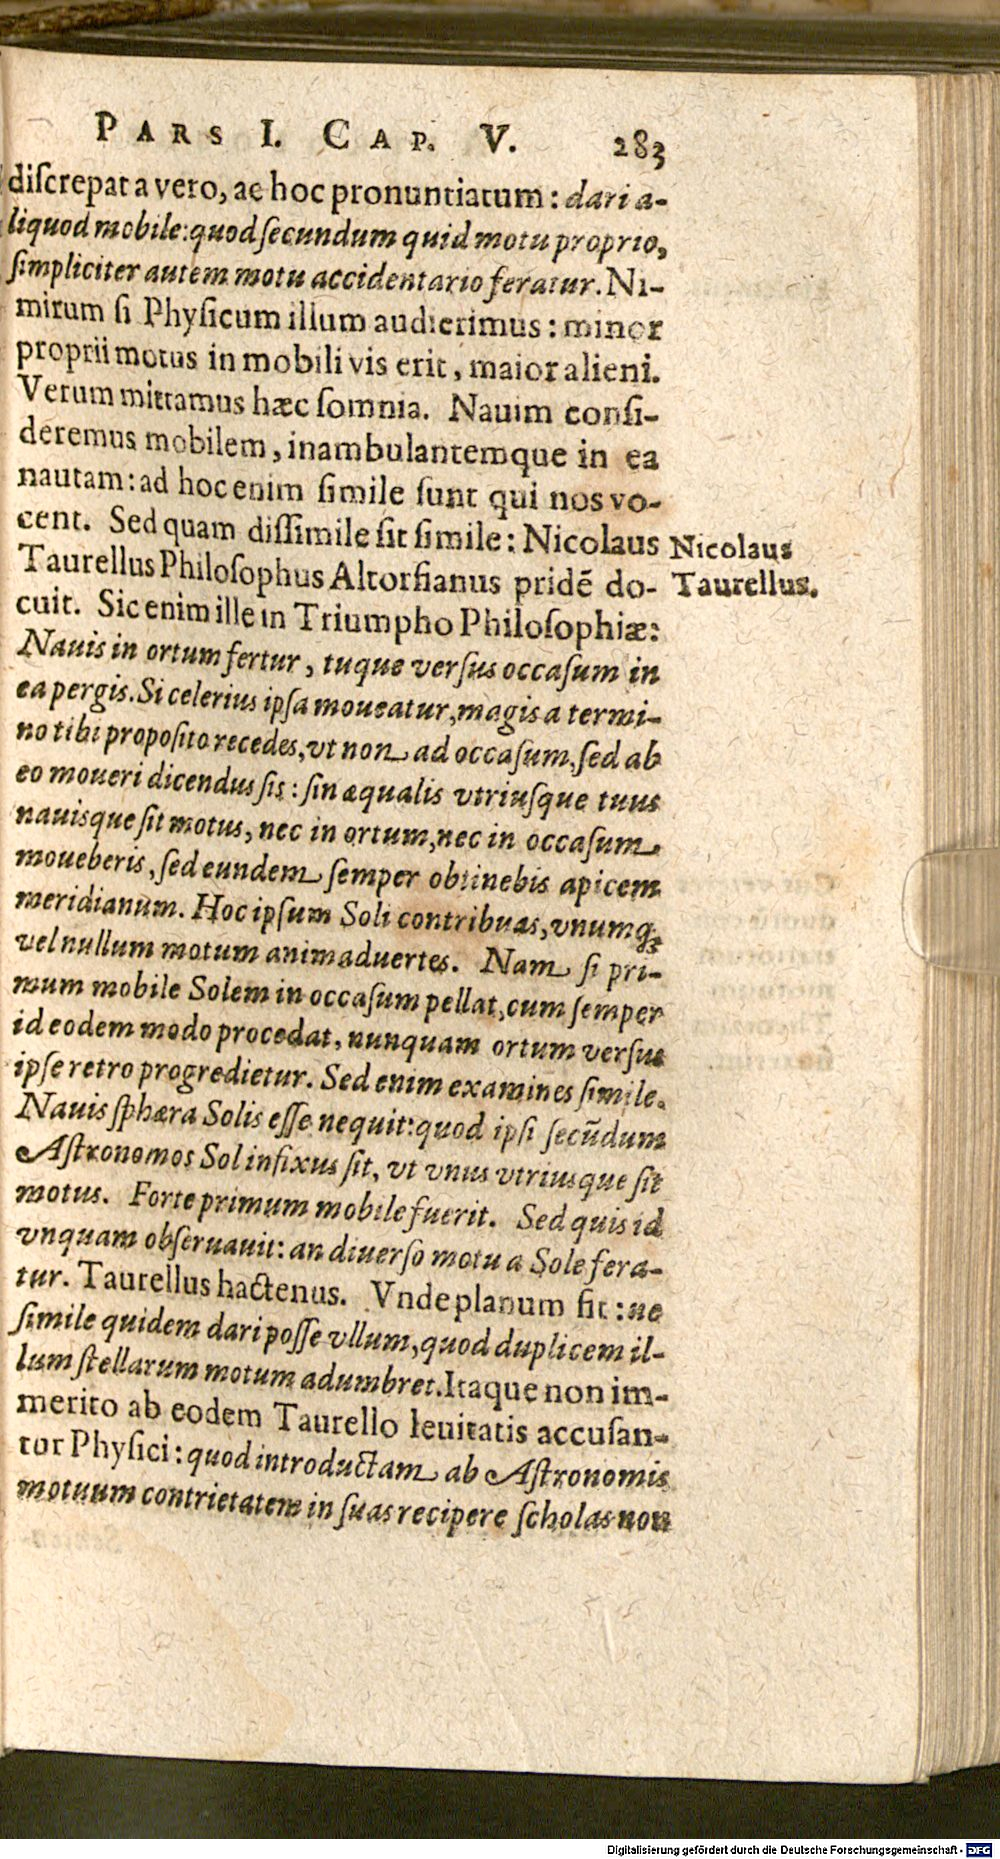 PARS I. CAP. V. 283
diſcrepat a vero, ac hoc pronuntiatum: dari a-
liquod mobile: quod ſecundum quid motu proprio,
ſimpliciter autem motu accidentario feratur. Ni-
mirum ſi Phyſicum illum audierimus: minor
proprii motus in mobili vis erit, maior alieni.
Verum mittamus hæc ſomnia. Nauim conſi-
deremus mobilem, inambulantemque in ea
nautam: ad hoc enim ſimile ſunt qui nos vo-
cent. Sed quam diſſimile ſit ſimile: Nicolaus
Nicolaus
Taurellus Philoſophus Altorfianus pridē do-
Taurellus.
cuit. Sic enim ille in Triumpho Philoſophiæ:
Nauis in ortum fertur, tuque verſus occaſum in
ea pergis. Si celerius ipſa moueatur, magis a termi-
no tibi propoſito recedes, vt non ad occaſum, ſed ab
eo moueri dicendus ſis: ſin æqualis vtriuſque tuus
nauisque ſit motus, nec in ortum, nec in occaſum
moueberis, ſed eundem ſemper obtinebis apicem
meridianum. Hoc ipſum Soli contribuas, vnumq;
vel nullum motum animaduertes. Nam ſi pri-
mum mobile Solem in occaſum pellat, cum ſemper
id eodem modo procedat, nunquam ortum verſus
ipſe retro progredietur. Sed enim examines ſimile.
Nauis ſphæra Solis eſſe nequit: quod ipſi ſecūdum
Aſtronomos Sol infixus ſit, vt vnus vtriusque ſit
motus. Forte primum mobile fuerit. Sed quis id
vnquam obſeruauit: an diuerſo motu a Sole fera-
tur. Taurellus hactenus. Vnde planum fit: ne
ſimile quidem dari poſſe vllum, quod duplicem il-
lum ſtellarum motum adumbret. Itaque non im-
merito ab eodem Taurello leuitatis accuſan-
tur Phyſici: quod introductam ab Aſtronomis
motuum contrietatem in ſuas recipere ſcholas non
Digitalisierung gefördert durch die Deutsche Forschungsgemeinschaft - DFG